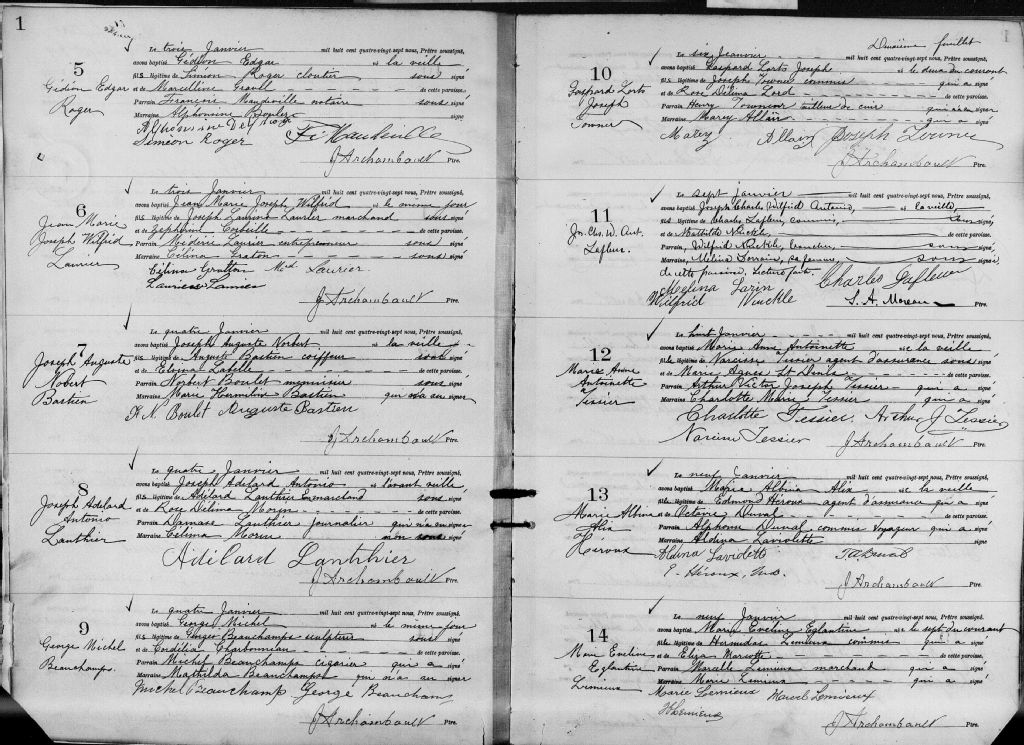 1
5
Gédéon Edgar
Roger
Le trois Janvier mil huit cent quatre-vingt-sept nous, Prêtre soussigné,
avons baptisé Gédéon Edgar né la veille
fils légitime de Siméon Roger cloutier sous signé
et de Marcelline Gravel de cette paroisse.
Parrain François Mandeville notaire sous signé
Marraine Alphonsine signé
Siméon Roger
J Archambault Ptre.
6
Jean Marie
Joseph Wilfrid
Laurier
Le trois Janvier mil huit cent quatre-vingt-sept nous, Prêtre soussigné,
avons baptisé Jean Marie Joseph Wilfrid né le même jour
fils légitime de Joseph Laurier marchand sous signé
et de Corbeille de cette paroisse.
Parrain Médéric Laurier entrepreneur sous signé
Marraine Célina Graton sous signé
Célina Gratton Méd Laurier
J Archambault Ptre.
7
Joseph Auguste
Nobert
Bastien
Le quatre Janvier mil huit cent quatre-vingt-sept nous, Prêtre soussigné,
avons baptisé Joseph Auguste Norbert né la veille
fils légitime de Auguste Bastien coiffeur sous signé
et de Labelle de cette paroisse.
Parrain Norbert Boulet menuisier sous signé
Marraine Marie Bastien qui n'a su signer
N. Boulet Auguste Bastien
J Archambault Ptre.
8
Joseph Adelard
Antonio
Lanthier
Le quatre Janvier mil huit cent quatre-vingt-sept nous, Prêtre soussigné,
avons baptisé Joseph Adelard Antonio né l'avant veille
fils légitime de Adelard Lanthier sous signé
et de Rose Delima Morin de cette paroisse.
Parrain Damase Lanthier journalier qui n'a su signer
Marraine Célima Morin non sous signé
Adélard Lanthier
J Archambault Ptre.
9
George Michel
Beauchamps.
Le quatre Janvier mil huit cent quatre-vingt-sept nous, Prêtre soussigné,
avons baptisé George Michel né le même jour
fils légitime de George Beauchamps sculpteur sous signé
et de Cordélia Charbonneau de cette paroisse.
Parrain Michel Beauchamps cigarier qui a signé
Marraine Mathilda Beauchamps qui n'a su signer
Michel Beauchamp George Beauchamp
J Archambault Ptre.
feuillet
10
Gaspard
Joseph
Le six Janvier mil huit cent quatre-vingt-sept nous, Prêtre soussigné,
avons baptisé Gaspard Joseph né le deux du courant
fils légitime de Joseph commis qui a signé
et de Rose Délima Lord de cette paroisse.
Parrain Henry tailleur de cuir qui n'a su signer
Marraine Marey Allair qui a signé
Marey Allary Joseph
J Archambault Ptre.
11
Jos. Chs. W. Ant.
Lafleur.
Le sept janvier mil huit cent quatre-vingt-sept nous, Prêtre soussigné,
avons baptisé Joseph Charles Wilfrid Antonio, né la veille,
fils légitime de Charles Lafleur, commis, sous signé
et de Mathilde de cette paroisse.
Parrain, Wilfrid sous signé
Marraine, Mélina sa femme, sous signé
de cette paroisse. Lecture faite.
Melina Charles Lafleur
Wilfrid S. A. Moreau Ptre.
12
Marie Anne
Antoinette
Tessier
Le huit Janvier mil huit cent quatre-vingt-sept nous, Prêtre soussigné,
avons baptisé Marie Anne Antoinette née la veille
fille légitime de Narcisse Tessier agent d'assurance sous signé
et de Marie Agnès St Denis de cette paroisse.
Parrain Arthur Victor Joseph Tessier qui a signé
Marraine Charlotte Marie Tessier qui a signé
Charlotte Tessier Arthur J Tessier
Narcisse Tessier J Archambault Ptre.
13
Marie Albina
Alix
Héroux
Le neuf Janvier mil huit cent quatre-vingt-sept nous, Prêtre soussigné,
avons baptisé Maria Albina Alix née la veille
fille légitime de Edmond Héroux agent d'assurance qui a signé
et de Octavie Duval de cette paroisse.
Parrain Alphonse Duval commis voyageur qui a signé
Marraine Aldina Laviolette signé
Aldina Laviolette
E. Héroux
J Archambault Ptre.
14
Marie Eveline
Eglantine
Lemieux
Le neuf Janvier mil huit cent quatre-vingt-sept nous, Prêtre soussigné,
avons baptisé Marie Eveline Eglantine née le sept du courant
fille légitime de Hermidas Lemieux commis qui a signé
et de Eliza Marcotte de cette paroisse.
Parrain Marcelle Lemieux marchand qui a signé
Marraine Marie Lemieux qui a signé
Marie Lemieux Marcel Lemieux
H Lemieux
J Archambault Ptre.